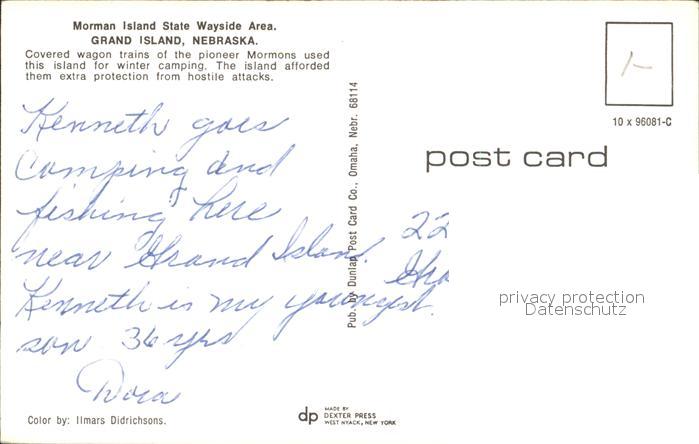 Morman Island State Wayside Area.
GRAND ISLAND, NEBRASKA.
Covered wagon trains of the pioneer Mormons used
this island for winter camping. The island afforded
them extra protection from hostile attacks.
Kenneth goes
Camping and
fishing here
near Grand Island.
Kenneth is my youngest
son 36 yrs
Dora
Color by: Ilmars Didrichsons.
Pub. by Dunlap Post Card Co., Omaha, Nebr. 68114
dp
MADE BY
DEXTER PRESS
WEST NYACK, NEW YORK
10 x 96081-C
post card
22
privacy protection
Datenschutz